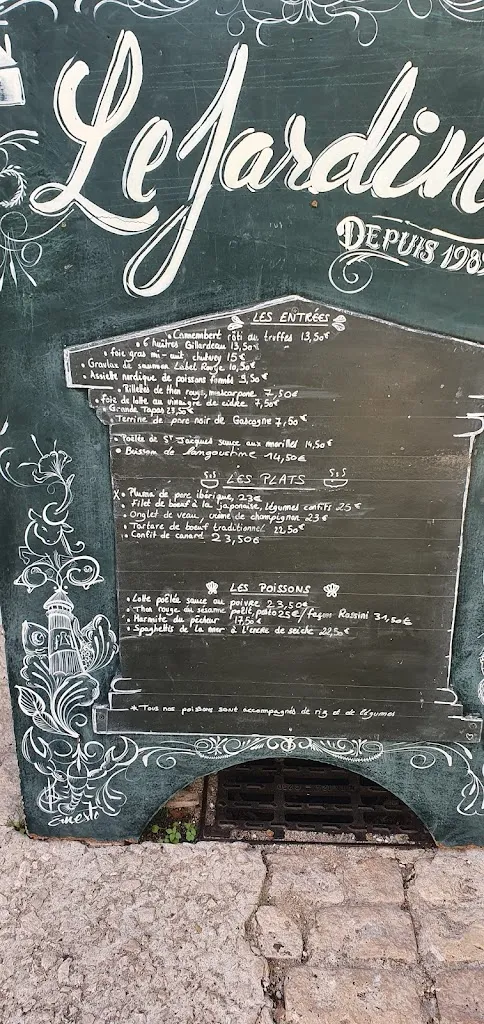 Le Jardin
DEPUIS 198
LES ENTRÉES
• Camembert rôti au truffes 13,50€
• 6 huîtres Gillardeau 13,50€
• foie gras mi-cuit, chutney 15€
• Gravlax de saumon Label Rouge 10,50€
• Assiette nordique de poissons fumés 9,50€
• Rillettes de thon rouge, mascarpone 7,50€
• foie de lotte au vinaigre de cidre 7,50€
• Grande Tapas 23,50€
• Terrine de porc noir de Gascogne 7,50€
• Poêlée de St Jacques sauce aux morilles 14,50€
• Buisson de langoustine 14,50€
LES PLATS
X • Pluma de porc ibérique, 23€
• Filet de boeuf à la japonaise, légumes confits 25€
• Onglet de veau, crème de champignon 23€
• Tartare de boeuf traditionnel 22,50€
• Confit de canard 23,50€
LES POISSONS
• Lotte poêlée sauce au poivre 23,50€
• Thon rouge au sésame petit pata 25€/façon Rossini 31,50€
• Marmite du pêcheur 17,50€
• Spaghettis de la mer à l'encre de seiche 22,50€
* Tous nos poissons sont accompagnés de riz et de légumes
Ernesto